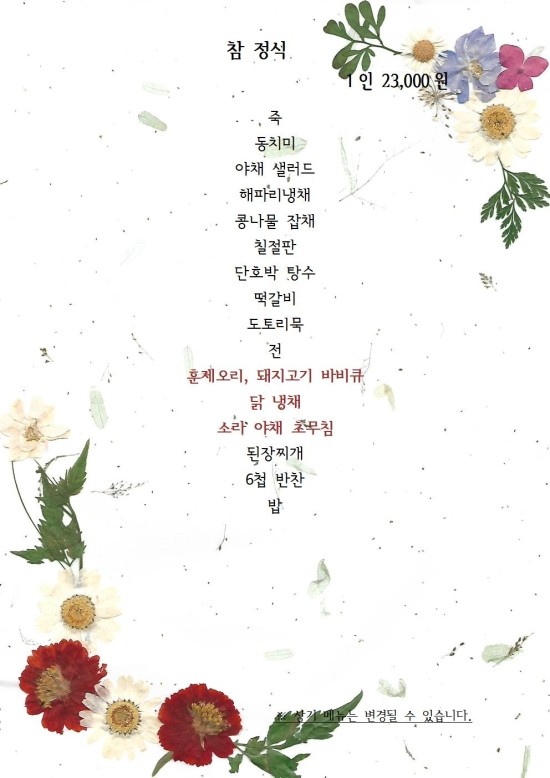 참 정식
1인 23,000원
죽
동치미
야채 샐러드
해파리냉채
콩나물 잡채
칠절판
단호박 탕수
떡갈비
도토리묵
전
훈제오리, 돼지고기 바비큐
닭 냉채
소라 야채 초무침
된장찌개
6첩 반찬
밥
※ 상기 메뉴는 변경될 수 있습니다.